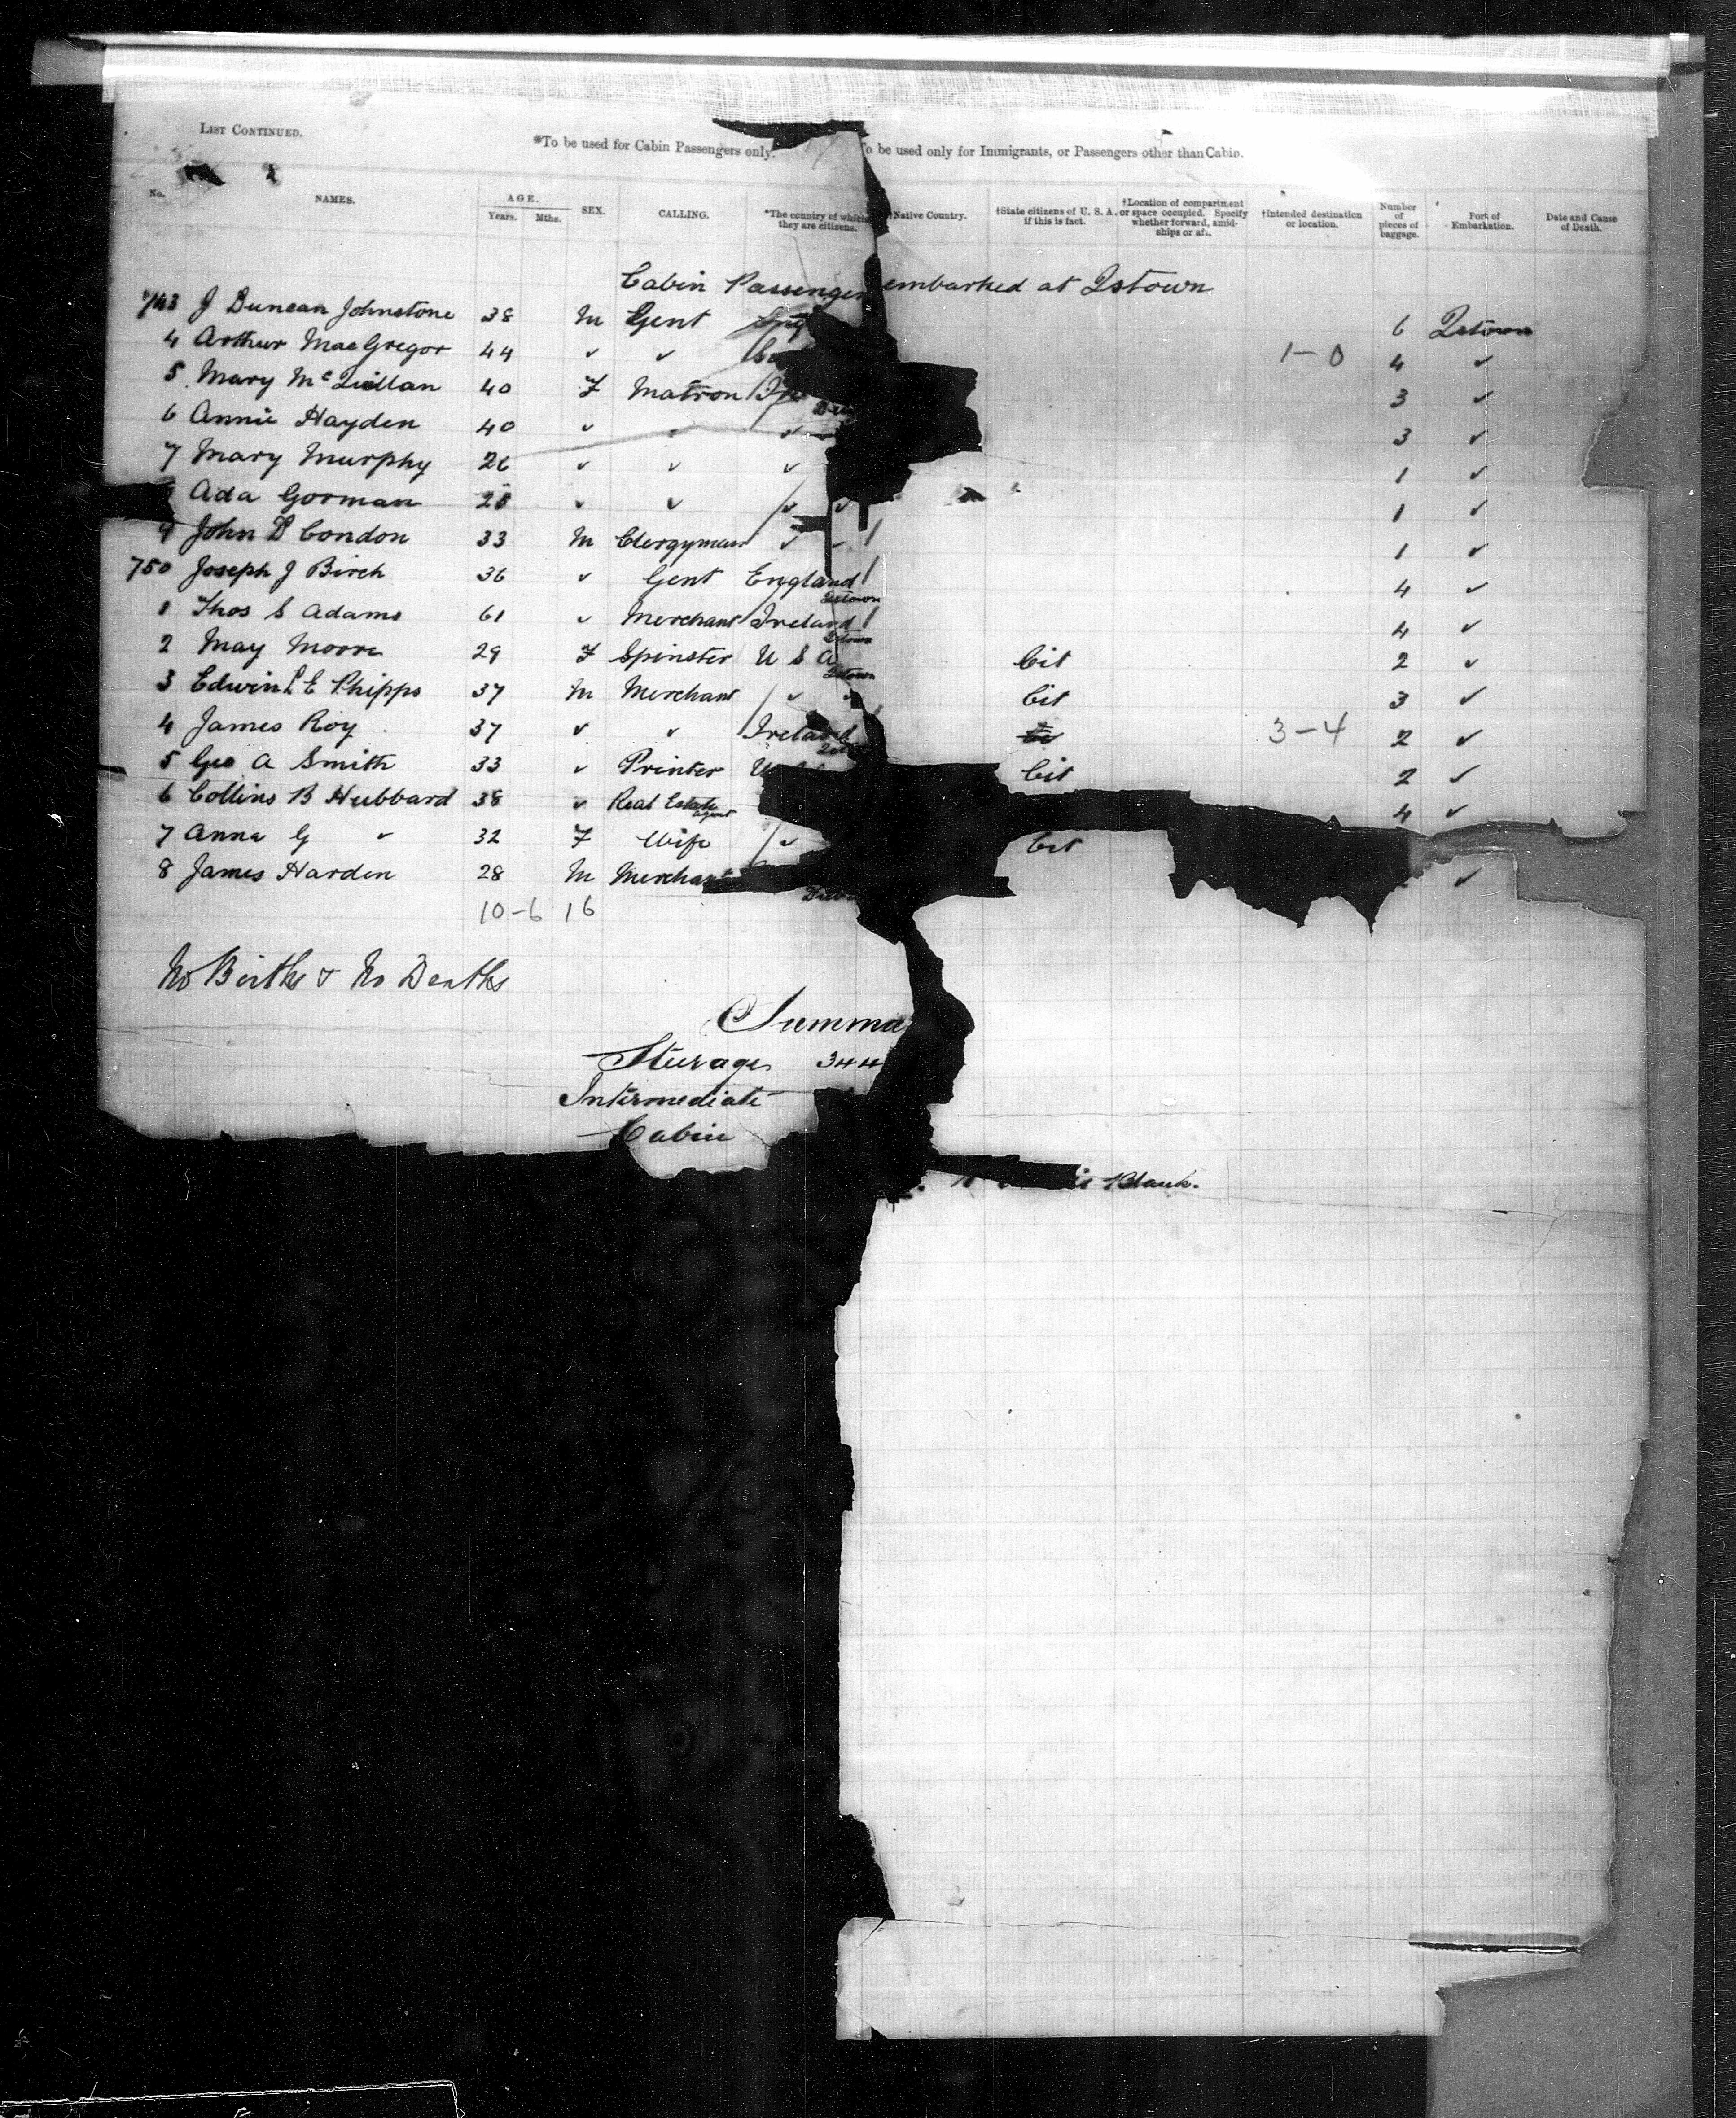 LIST CONTINUED.
*To be used for Cabin Passengers only.
o be used only for Immigrants, or Passengers other than Cabin.
No. NAMES. AGE. Years. Mths. SEX. CALLING. *The country of which they are citizens. †Native Country. †State citizens of U. S. A. if this is fact. †Location of compartment or space occupied. Specify whether forward, amidships or aft. †Intended destination or location. Number of pieces of baggage. Port of Embarkation. Date and Cause of Death.
Cabin Passenger embarked at Qstown
743 J Duncan Johnstone 38 M Gent Eng 6 Qstown
4 Arthur MacGregor 44 ✓ ✓ 1-0 4 ✓
5 Mary McQuillan 40 F Matron Ire 3 ✓
6 Annie Hayden 40 ✓ ✓ ✓ 3 ✓
7 Mary Murphy 26 ✓ ✓ ✓ 1 ✓
Ada Gorman 25 ✓ ✓ ✓ ✓ 1 ✓
9 John D Condon 33 M Clergyman ✓ ✓ 1 ✓
750 Joseph J Birch 36 ✓ Gent England Qstown 4 ✓
1 Thos S Adams 61 ✓ Merchant Ireland Qstown 4 ✓
2 May Moore 29 F Spinster U S A Qstown Cit 2 ✓
3 Edwin L E Phipps 37 M Merchant ✓ ✓ Cit 3 ✓
4 James Roy 37 ✓ ✓ Ireland 3-4 2 ✓
5 Geo A Smith 33 ✓ Printer U Cit 2 ✓
6 Collins B Hubbard 38 ✓ Real Estate agent 4 ✓
7 Anna G ✓ 32 F Wife ✓ Cit
8 James Harden 28 M Merchant ✓
10-6 16
No Births & No Deaths
Summa
Steerage 344
Intermediate
Cabin
is Blank.